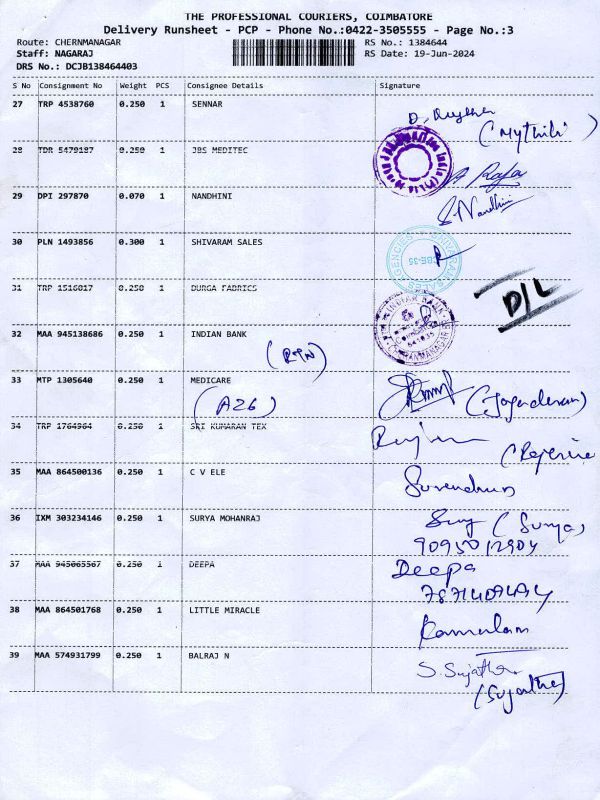 THE PROFESSIONAL COURIERS, COIMBATORE
Delivery Runsheet - PCP - Phone No.:0422-3505555 - Page No.:3
Route: CHERNMANAGAR RS No.: 1384644
Staff: NAGARAJ RS Date: 19-Jun-2024
DRS No.: DCJB138464403
S No Consignment No Weight PCS Consignee Details Signature
27 TRP 4538760 0.250 1 SENNAR
(Mythili)
28 TDR 5479187 0.250 1 JBS MEDITEC
29 DPI 297870 0.070 1 NANDHINI
S. Nandhini
30 PLN 1493856 0.300 1 SHIVARAM SALES
31 TRP 1516017 0.250 1 DURGA FABRICS
D/L
32 MAA 945138686 0.250 1 INDIAN BANK
INDIAN BANK
33 MTP 1305640 0.250 1 MEDICARE
(A26)
34 TRP 1764964 0.250 1 SRI KUMARAN TEX
35 MAA 864500136 0.250 1 C V ELE
36 IXM 303234146 0.250 1 SURYA MOHANRAJ
(Surya)
9095012904
37 MAA 945065567 0.250 1 DEEPA
Deepa
38 MAA 864501768 0.250 1 LITTLE MIRACLE
39 MAA 574931799 0.250 1 BALRAJ N
S. Sujatha
(Sujatha)